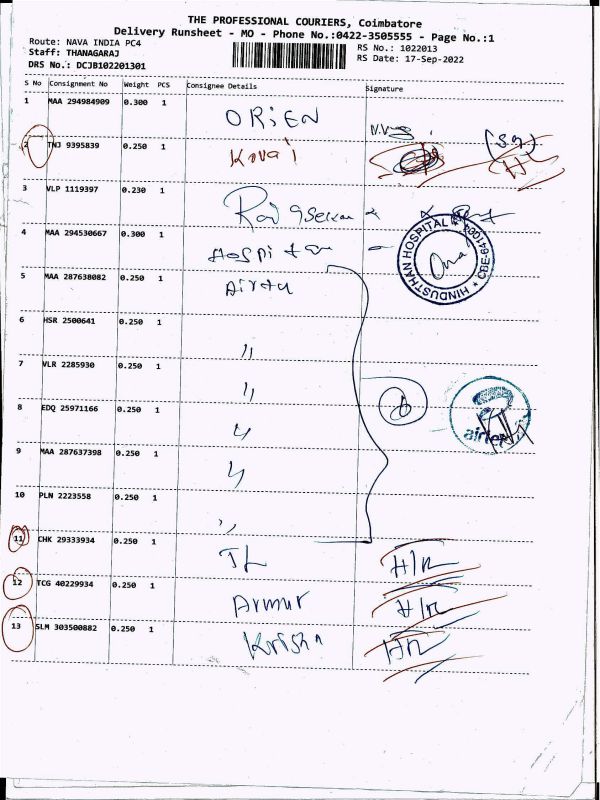 THE PROFESSIONAL COURIERS, Coimbatore
Delivery Runsheet - MO - Phone No.:0422-3505555 - Page No.:1
Route: NAVA INDIA PC4
RS No.: 1022013
Staff: THANAGARAJ
RS Date: 17-Sep-2022
DRS No.: DCJB102201301
S No Consignment No Weight PCS Consignee Details Signature
1 MAA 294984909 0.300 1 ORIEN
2 TNJ 9395839 0.250 1 Kovai
3 VLP 1119397 0.230 1
4 MAA 294530667 0.300 1 Hospital
HINDUSTHAN HOSPITAL ★ CBE-641004 ★
5 MAA 287638082 0.250 1 Airtel
6 HSR 2500641 0.250 1 "
7 VLR 2285930 0.250 1 "
8 EDQ 25971166 0.250 1 "
airtel
9 MAA 287637398 0.250 1 "
10 PLN 2223558 0.250 1 "
11 CHK 29333934 0.250 1 TL
12 TCG 40229934 0.250 1 Armur
13 SLM 303500882 0.250 1 Krishn